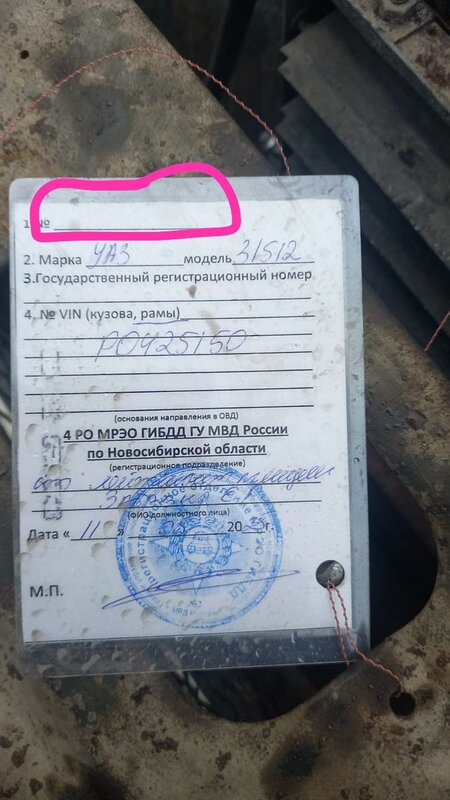 1 №
2. Марка УАЗ модель 31512
3.Государственный регистрационный номер
4. № VIN (кузова, рамы)
Р0425150
(основания направления в ОВД)
4 РО МРЭО ГИБДД ГУ МВД России
по Новосибирской области
(регистрационное подразделение)
(ФИО должностного лица)
Дата « 11 » 20 г.
М.П.